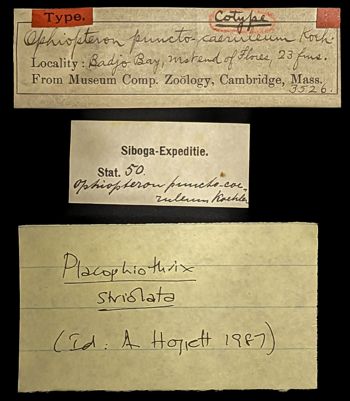 Type. Cotype
Ophiopteron puncto-caeruleum Koeh.
Locality: Badjo Bay, west end of Flores, 23 fms.
From Museum Comp. Zoölogy, Cambridge, Mass.
3526.
Siboga-Expeditie.
Stat. 50.
Ophiopteron puncto-coe-
ruleum Koehler
Placophiothrix
striolata
(Id: A Hoggett 1987)